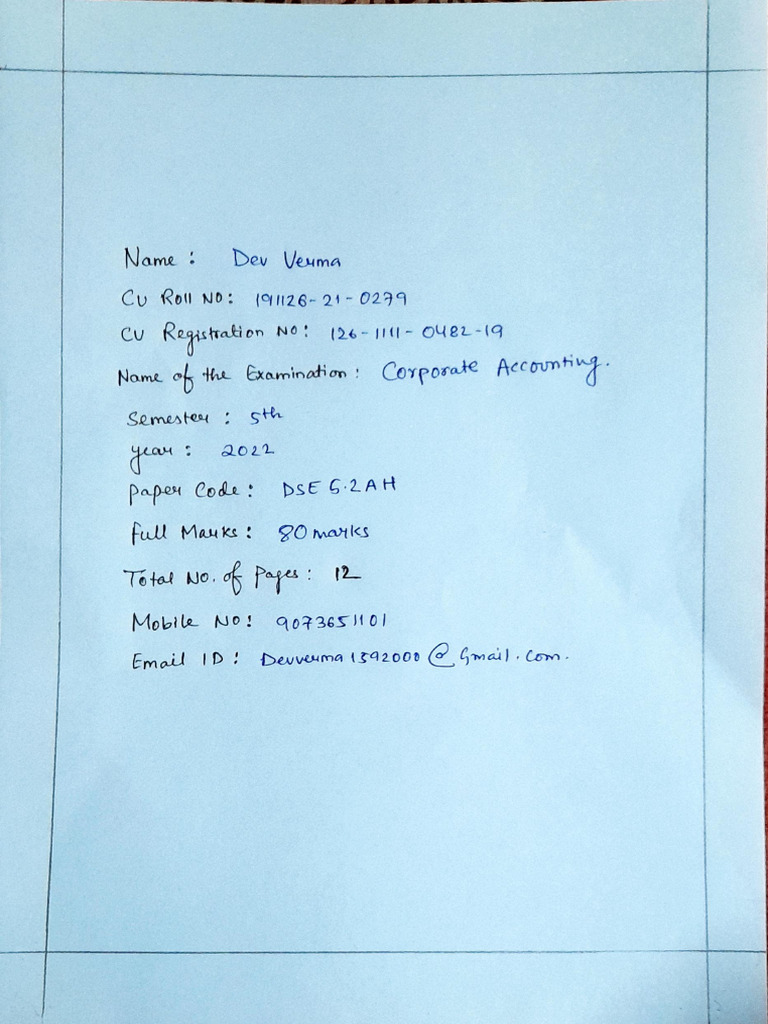 Name : Dev Verma
CU Roll NO: 191126-21-0279
CU Registration NO: 126-1111-0482-19
Name of the Examination: Corporate Accounting.
Semester : 5th
year : 2022
paper Code: DSE 5.2AH
full Marks: 80 marks
Total No. of Pages: 12
Mobile No: 9073651101
Email ID: Devverma1592000@Gmail.com.